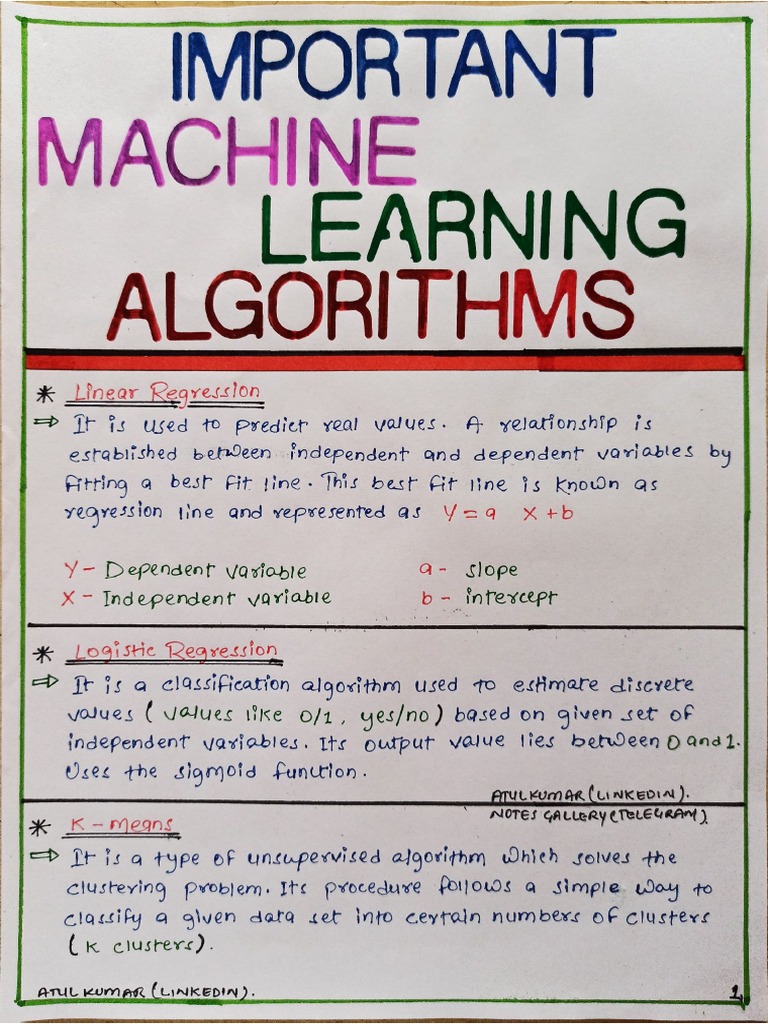 IMPORTANT
MACHINE
LEARNING
ALGORITHMS
* Linear Regression
⇒ It is used to predict real values. A relationship is
established between independent and dependent variables by
fitting a best fit line. This best fit line is known as
regression line and represented as Y = a X + b
Y - Dependent variable a - slope
X - Independent variable b - intercept
* Logistic Regression
⇒ It is a classification algorithm used to estimate discrete
values ( values like 0/1, yes/no) based on given set of
independent variables. Its output value lies between 0 and 1.
Uses the sigmoid function.
ATUL KUMAR (LINKEDIN).
NOTES GALLERY (TELEGRAM)
* K - means
⇒ It is a type of unsupervised algorithm which solves the
clustering problem. Its procedure follows a simple way to
classify a given data set into certain numbers of clusters
( K clusters).
ATUL KUMAR (LINKEDIN). 1